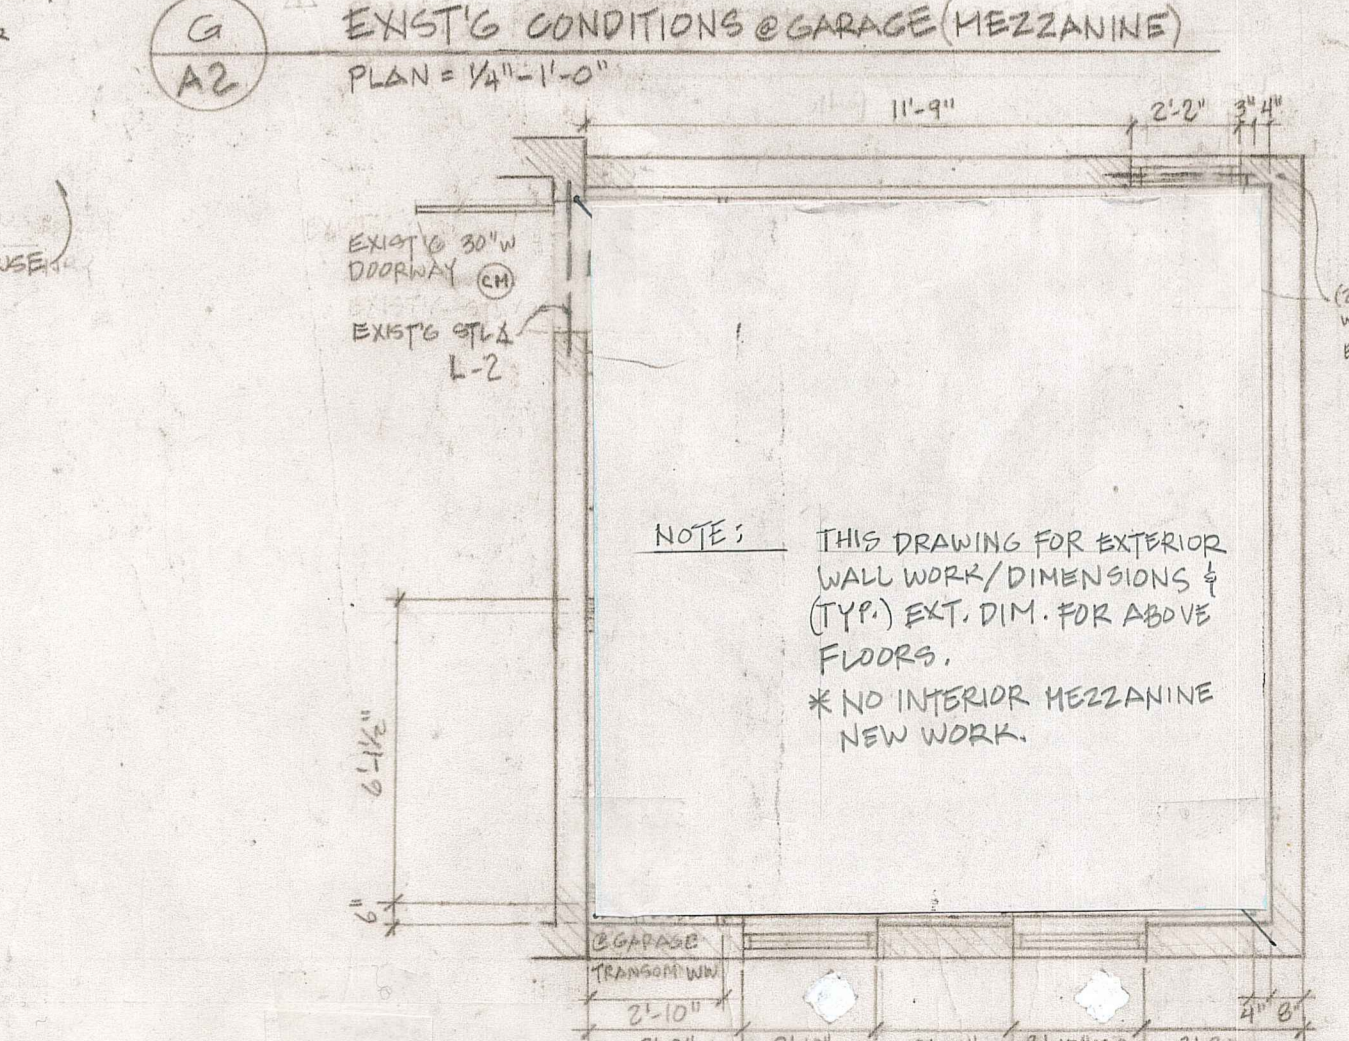 G
A2
EXIST'G CONDITIONS @ GARAGE (MEZZANINE)
PLAN = 1/4"-1'-0"
11'-9"
2'-2"
3"
4"
EXIST'G 30"W
DOORWAY
CM
EXIST'G STL
L-2
NOTE:
THIS DRAWING FOR EXTERIOR
WALL WORK/DIMENSIONS &
(TYP.) EXT. DIM. FOR ABOVE
FLOORS.
* NO INTERIOR MEZZANINE
NEW WORK.
@ GARAGE
TRANSOM WW
2'-10"
4"
8"